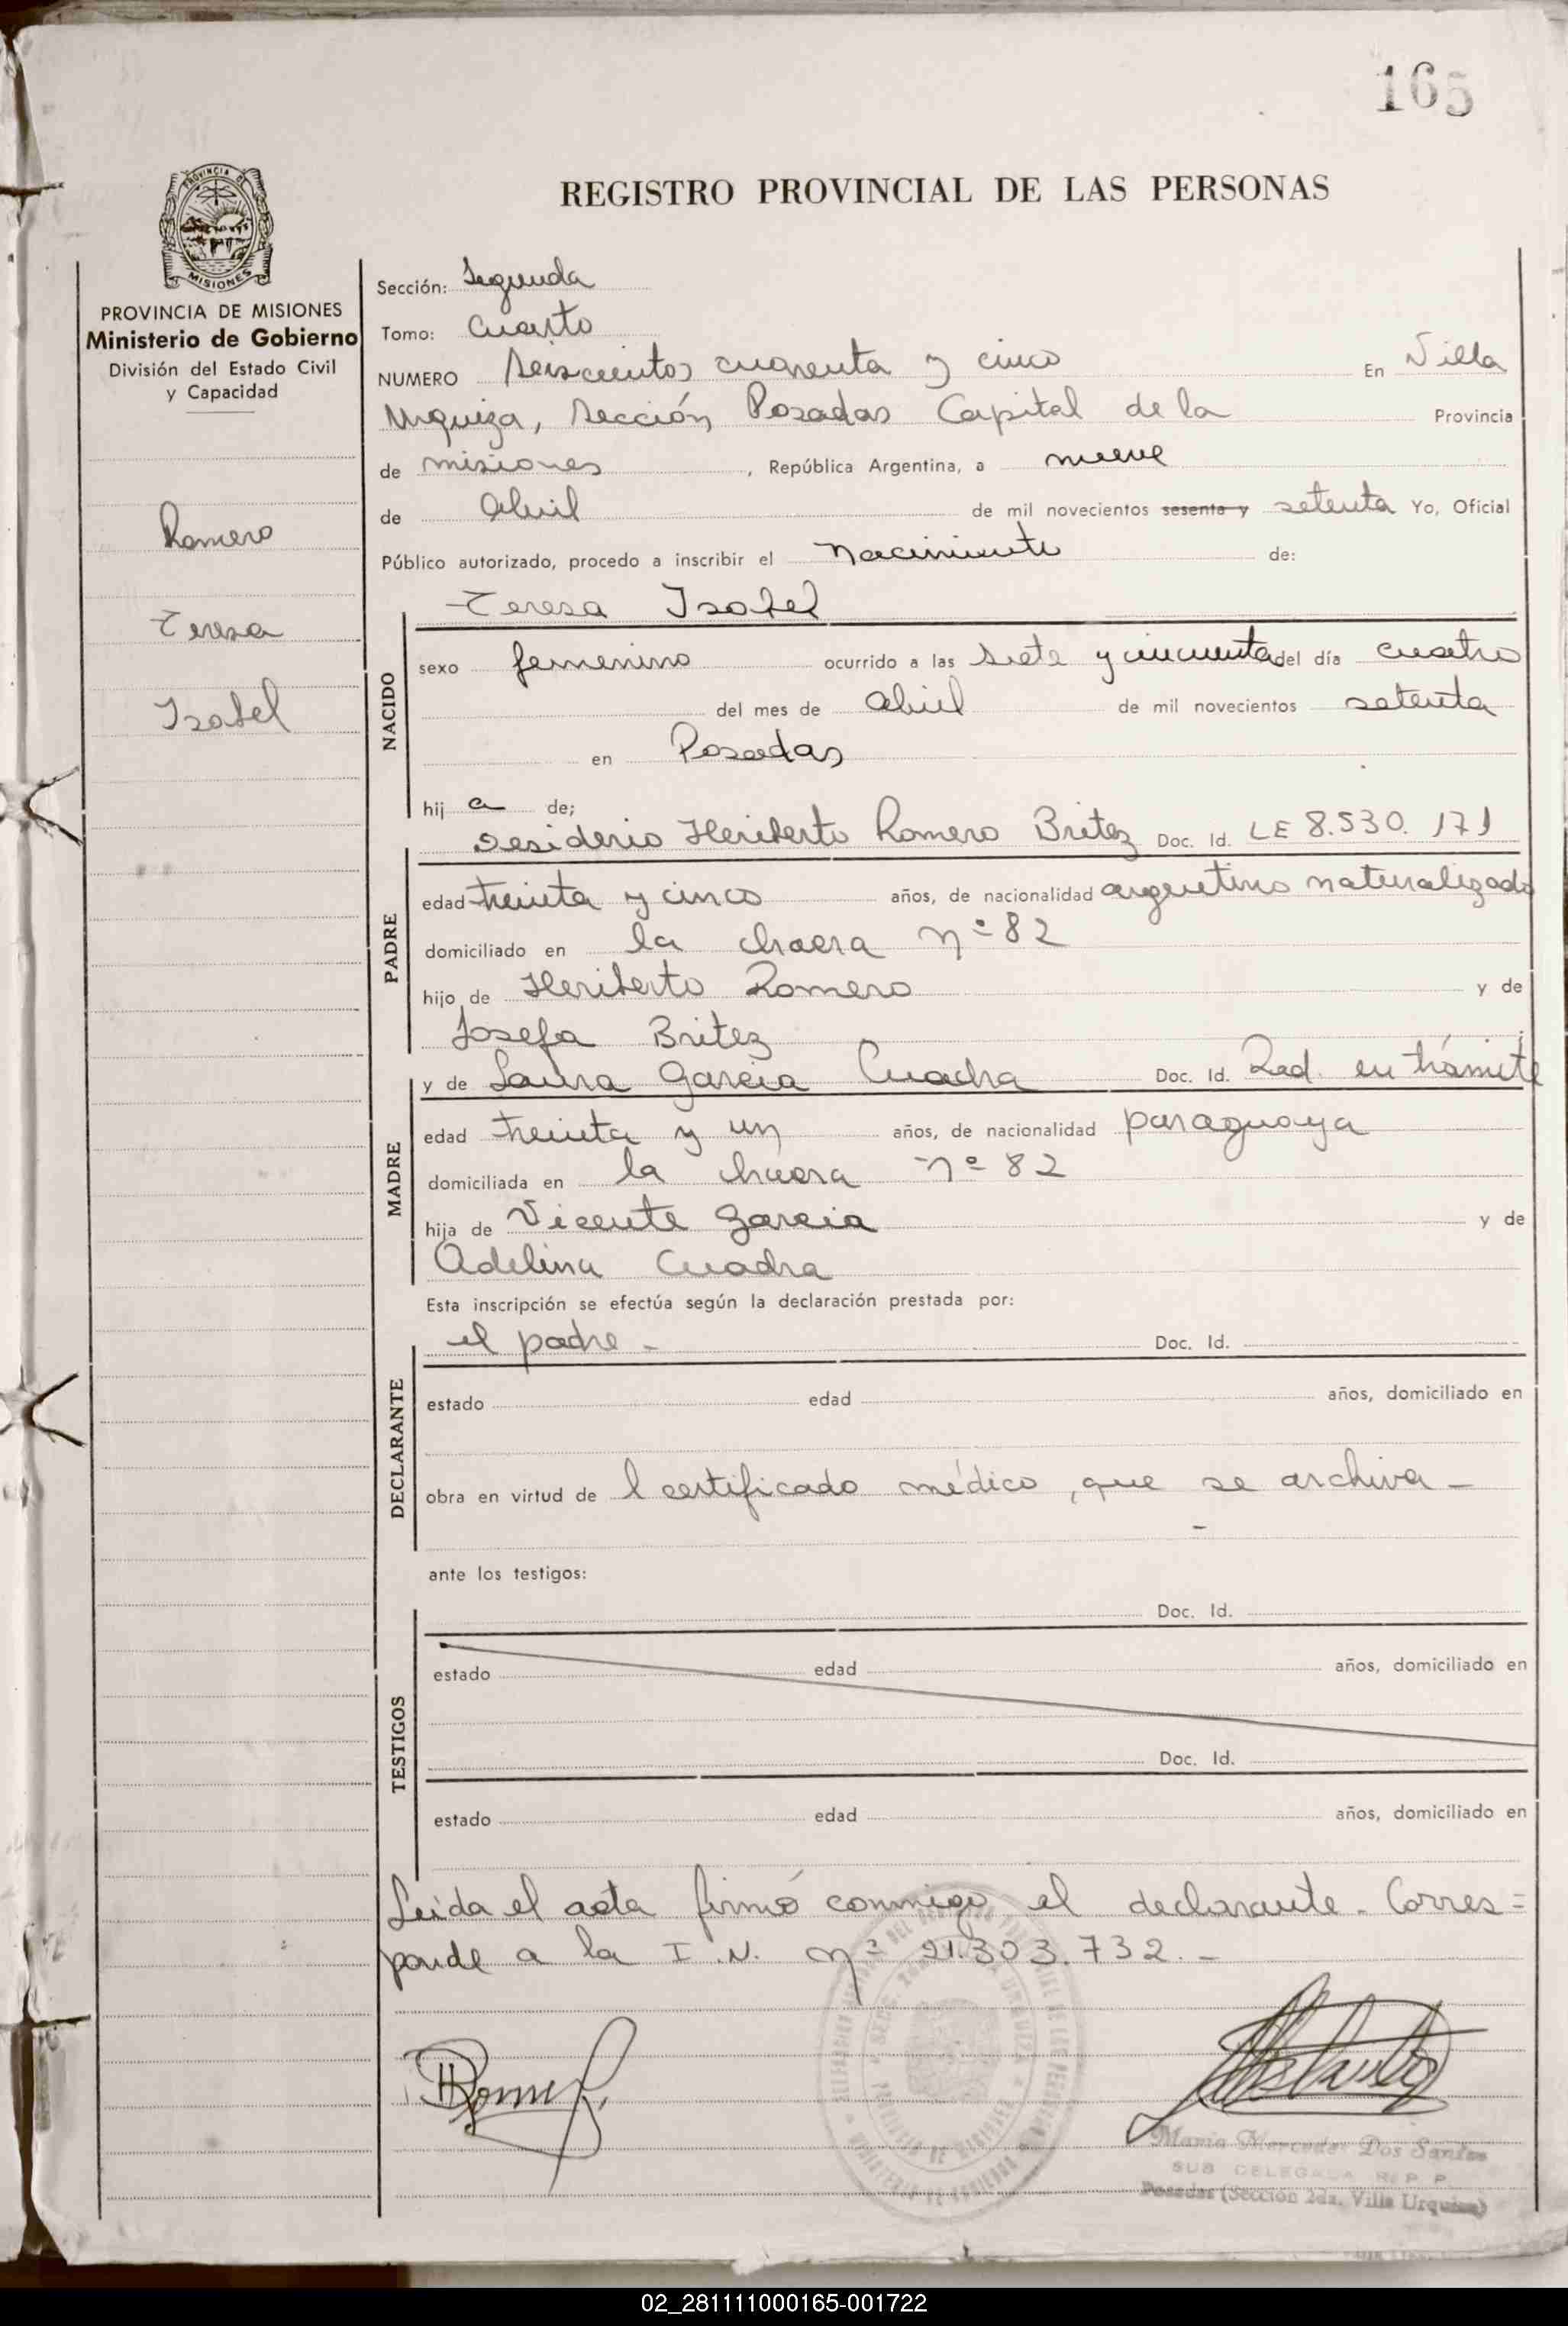 165
PROVINCIA DE
MISIONES
REGISTRO PROVINCIAL DE LAS PERSONAS
PROVINCIA DE MISIONES
Ministerio de Gobierno
División del Estado Civil
y Capacidad
Romero
Teresa
Isabel
Sección: Segunda
Tomo: Cuarto
NUMERO Seiscientos cuarenta y cinco En Villa
Urquiza, Sección Posadas Capital de la Provincia
de misiones, República Argentina, a nueve
de Abril de mil novecientos sesenta y setenta Yo, Oficial
Público autorizado, procedo a inscribir el nacimiento de:
Teresa Isabel
NACIDO
sexo femenino ocurrido a las siete y cincuenta del día cuatro
del mes de Abril de mil novecientos setenta
en Posadas
hij a de;
Desiderio Heriberto Romero Britez Doc. Id. LE 8.530.171
PADRE
edad treinta y cinco años, de nacionalidad argentino naturalizado
domiciliado en la chacra nº 82
hijo de Heriberto Romero y de
Josefa Britez
y de Laura Garcia Cuadra Doc. Id. Rad. en trámite
MADRE
edad treinta y un años, de nacionalidad paraguaya
domiciliada en la chacra nº 82
hija de Vicente Garcia y de
Adelina Cuadra
Esta inscripción se efectúa según la declaración prestada por:
el padre - Doc. Id.
DECLARANTE
estado edad años, domiciliado en
obra en virtud de l certificado médico, que se archiva -
ante los testigos:
Doc. Id.
TESTIGOS
estado edad años, domiciliado en
Doc. Id.
estado edad años, domiciliado en
Leida el acta firmó conmigo el declarante. Corres=
ponde a la I.N. nº 21.303.732. -
Maria Mercedes Dos Santos
SUB DELEGADA R. P. P.
Posadas (Sección 2da. Villa Urquiza)
02_281111000165-001722